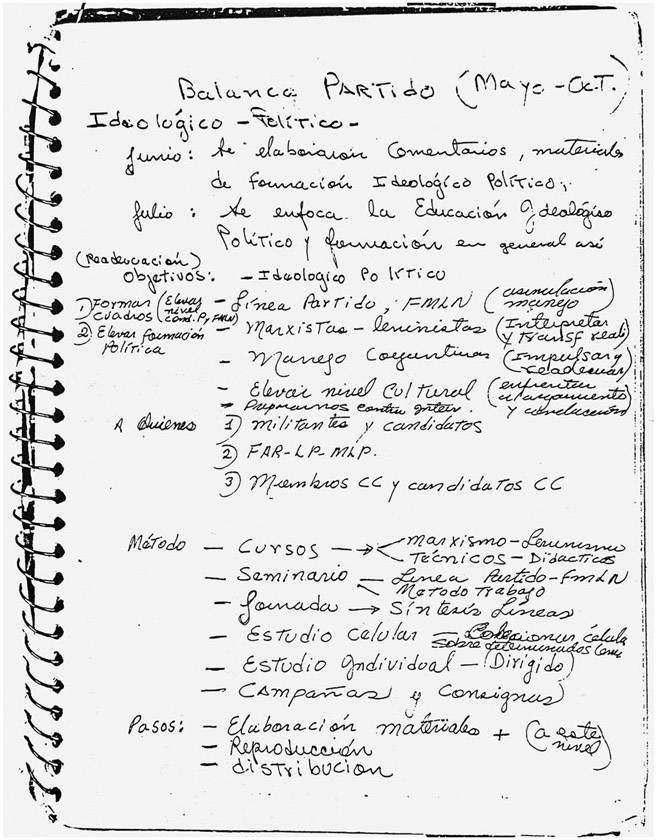 Balance PARTIDO (Mayo-Oct.)
Ideológico - Político -
Junio: Se elaboraron Comentarios, materiales
de formación Ideológico Político.
Julio: Se enfoca la Educación Ideológico
Político y formación en general así
(Readecuación)
Objetivos: - Ideologico Político
1) Formar cuadros (Elevar nivel cond. P y FMLN) - Línea Partido, FMLN (asimulación manejo)
2) Elevar formación Política - Marxistas-leninistas (Interpretar y Transf reali)
- Manejo Coyunturas (Impulsar y readecuar)
- Elevar nivel Cultural (enfrentar alargamiento y conducción)
- Prepararnos contra interv.
A Quienes 1) militantes y candidatos
2) FAR-LP-MLP.
3) Miembros CC y candidatos CC
Método - Cursos → marxismo-Leninismo
Técnicos - Didacticos
- Seminario - Línea Partido-FMLN
Metodo Trabajo
- Jornada → Síntesis Líneas
- Estudio Celular - célula
sobre determinados
- Estudio Individual - (Dirigido)
- Campañas y Consignas
Pasos: - Elaboración materiales + (a este nivel)
- Reproducción
- distribucion